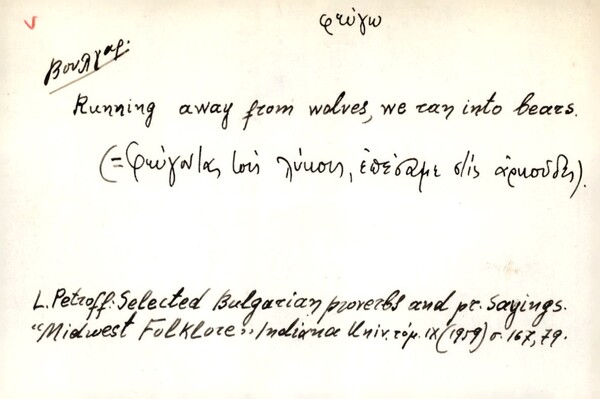 φεύγω
Βουλγαρ.
Running away from wolves, we ran into bears.
(= Φεύγοντας τούς λύκους, ἐπέσαμε στίς ἀρκούδες).
L. Petroff: Selected Bulgarian proverbs and pr. Sayings.
"Midwest Folklore", Indiana Univ. τόμ. IX (1959) σ. 167, 79.